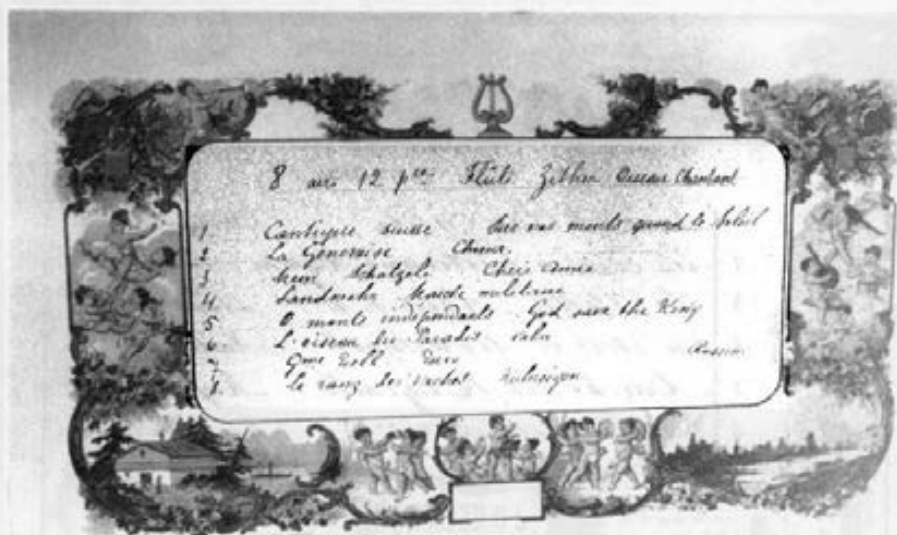 8 airs 12 pces Flûte Zither Oiseau Chantant
1 Cantique suisse Sur nos monts quand le Soleil
2 La Genevoise Chœur.
3 Mein Schatzeli Chère Amie
4 Landwehr Marche militaire
5 O monts indépendants God save the King
6 L'oiseau du Paradis valse
7 Gme Tell Rossini
8. Le ranz des vaches